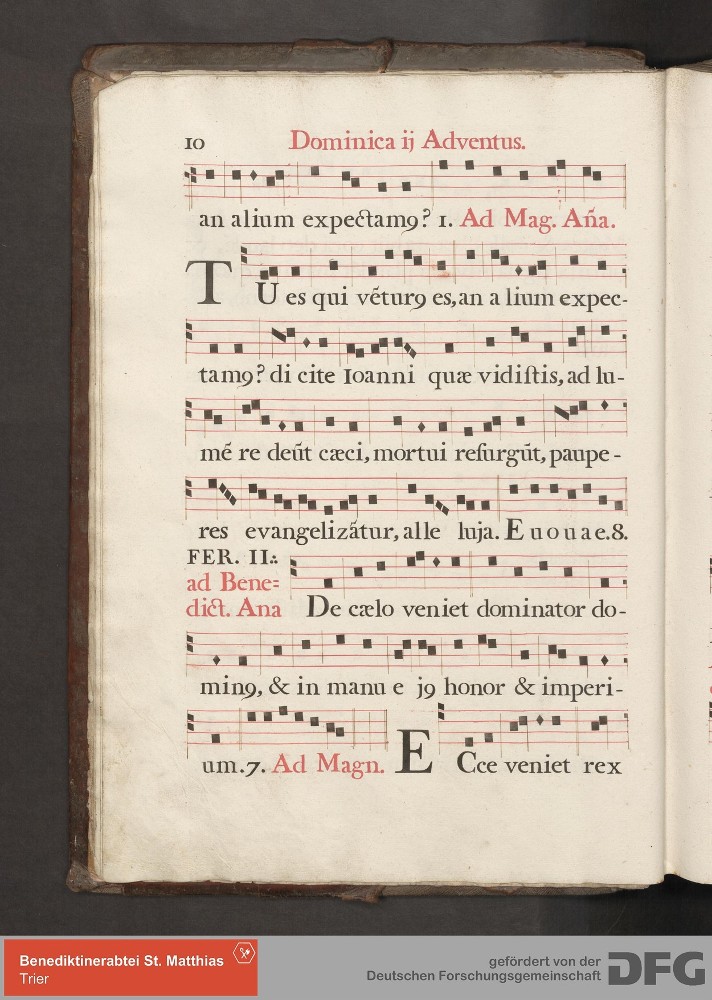 10 Dominica ij Adventus.
an alium expectamꝯ? 1. Ad Mag. Aña.
TU es qui vẽturꝯ es, an a lium expec-
tamꝯ? di cite Ioanni quæ vidiſtis, ad lu-
mẽ re deũt cæci, mortui reſurgũt, paupe-
res evangelizãtur, alle luja. E u o u a e. 8.
FER. II:.
ad Bene=
dict. Ana De cælo veniet dominator do-
minꝯ, & in manu e jꝯ honor & imperi-
um. 7. Ad Magn. ECce veniet rex
Benediktinerabtei St. Matthias
Trier
gefördert von der
Deutschen Forschungsgemeinschaft
DFG